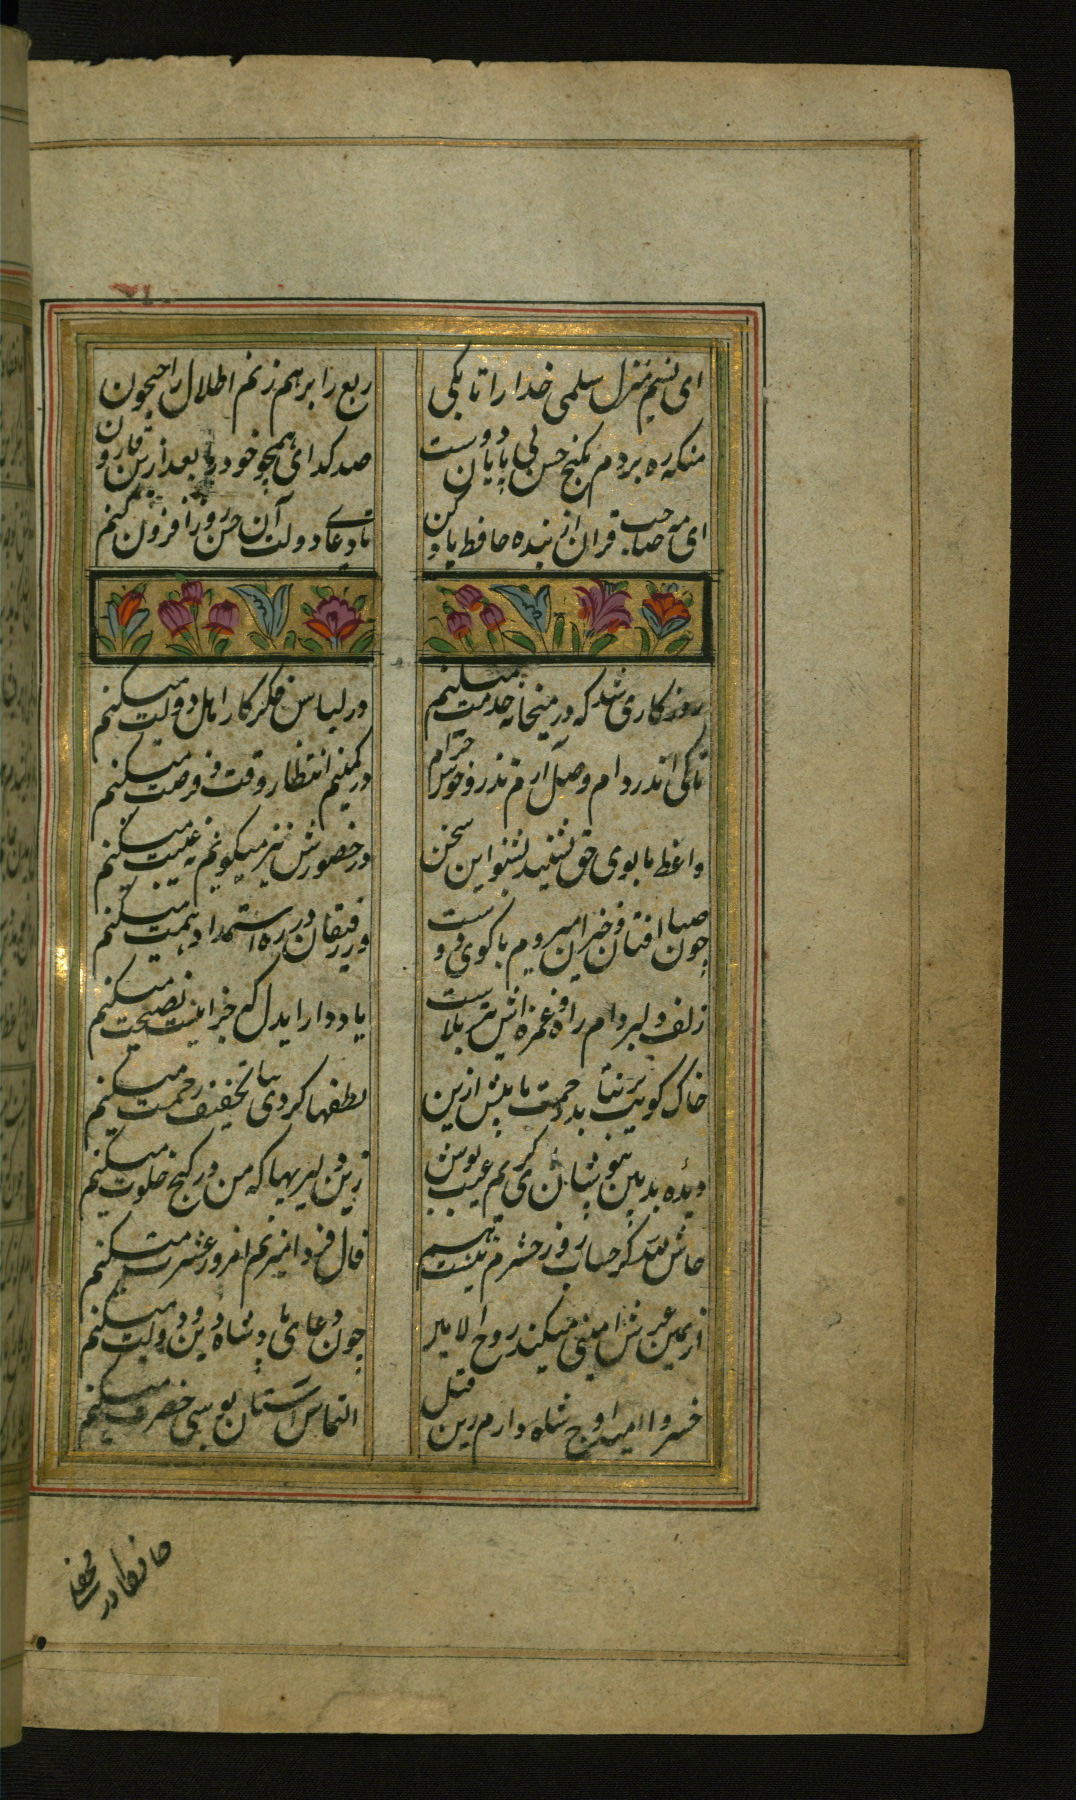 ای نسیم منزل سلمی خدا را تا بکی
ربع را برهم زنم اطلال را جیحون کنم
منکه ره بردم بکنج حسن بی پایان دوست
صد کدای همچو خود را بعد ازین قارون کنم
ای مه صاحب قران از بنده حافظ یاد کن
تا دعای دولت آن حسن روز افزون کنم
روزکاری شد که در میخانه خدمت میکنم
در لباس فکر کار اهل دولت میکنم
تا کی اندر دام وصل آرم تذرو خوش خرام
در کمینم انتظار وقت و فرصت میکنم
واعظ ما بوی حق نشنید بشنو این سخن
در حضورش نیز میکویم غیبت میکنم
چون صبا افتان و خیزان میروم تا کوی دوست
وز رفیقان در ره استمداد همت میکنم
زلف دلبر دام راه و غمزه اش تیر بلاست
یاد دار ایدل که چندینت نصیحت میکنم
خاک کویت بر نتابد زحمت ما بیش ازین
لطفها کردی بتا تخفیف زحمت میکنم
دیده بدبین بپوشان ای کریم عیب پوش
زین دلیریها که من در کنج خلوت میکنم
حاش لله کز حساب روز حشرم نیست بیم
فال فردا میزنم امروز عشرت میکنم
از یمین عرش امین میکند روح الامین
چون دعای پادشاه دین و دولت میکنم
خسروا امید اوج شاه دارم زین قبل
التماس آستان بوسی حضرت میکنم
حافظا در محفلی